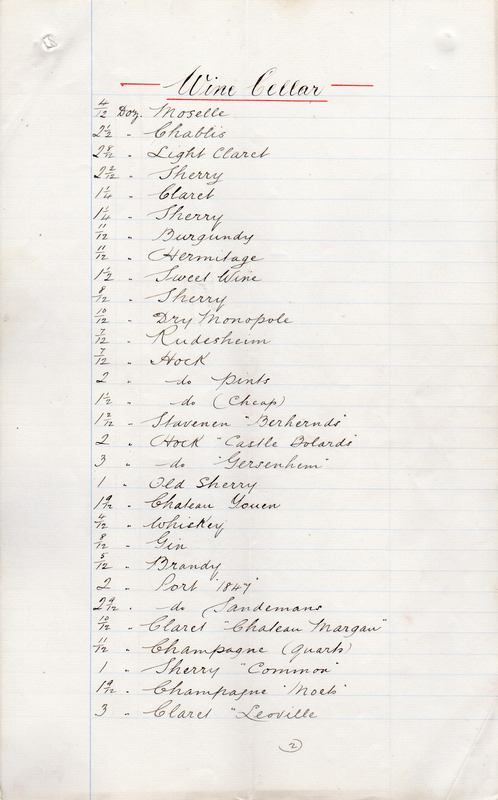 Wine Cellar
4/12 Doz. Moselle
2 1/2 " Chablis
2 8/12 " Light Claret
2 2/12 " Sherry
1 1/4 " Claret
1 1/4 " Sherry
11/12 " Burgundy
11/12 " Hermitage
1 1/2 " Sweet Wine
8/12 " Sherry
10/12 " Dry Monopole
7/12 " Rudesheim
7/12 " Hock
2 " do pints
1 1/2 " do (Cheap)
1 2/12 "
2 " Hock "Castle
3 " do "Gersenheim"
1 " Old Sherry
1 9/12 " Chateau
4/12 " Whiskey
8/12 " Gin
5/12 " Brandy
2 " Port "1847"
2 9/12 " do Sandemans
10/12 " Claret "Chateau Margau"
11/12 " Champagne (Quarts)
1 " Sherry "Common"
1 9/12 " Champagne "Moets"
3 " Claret "Leoville
2